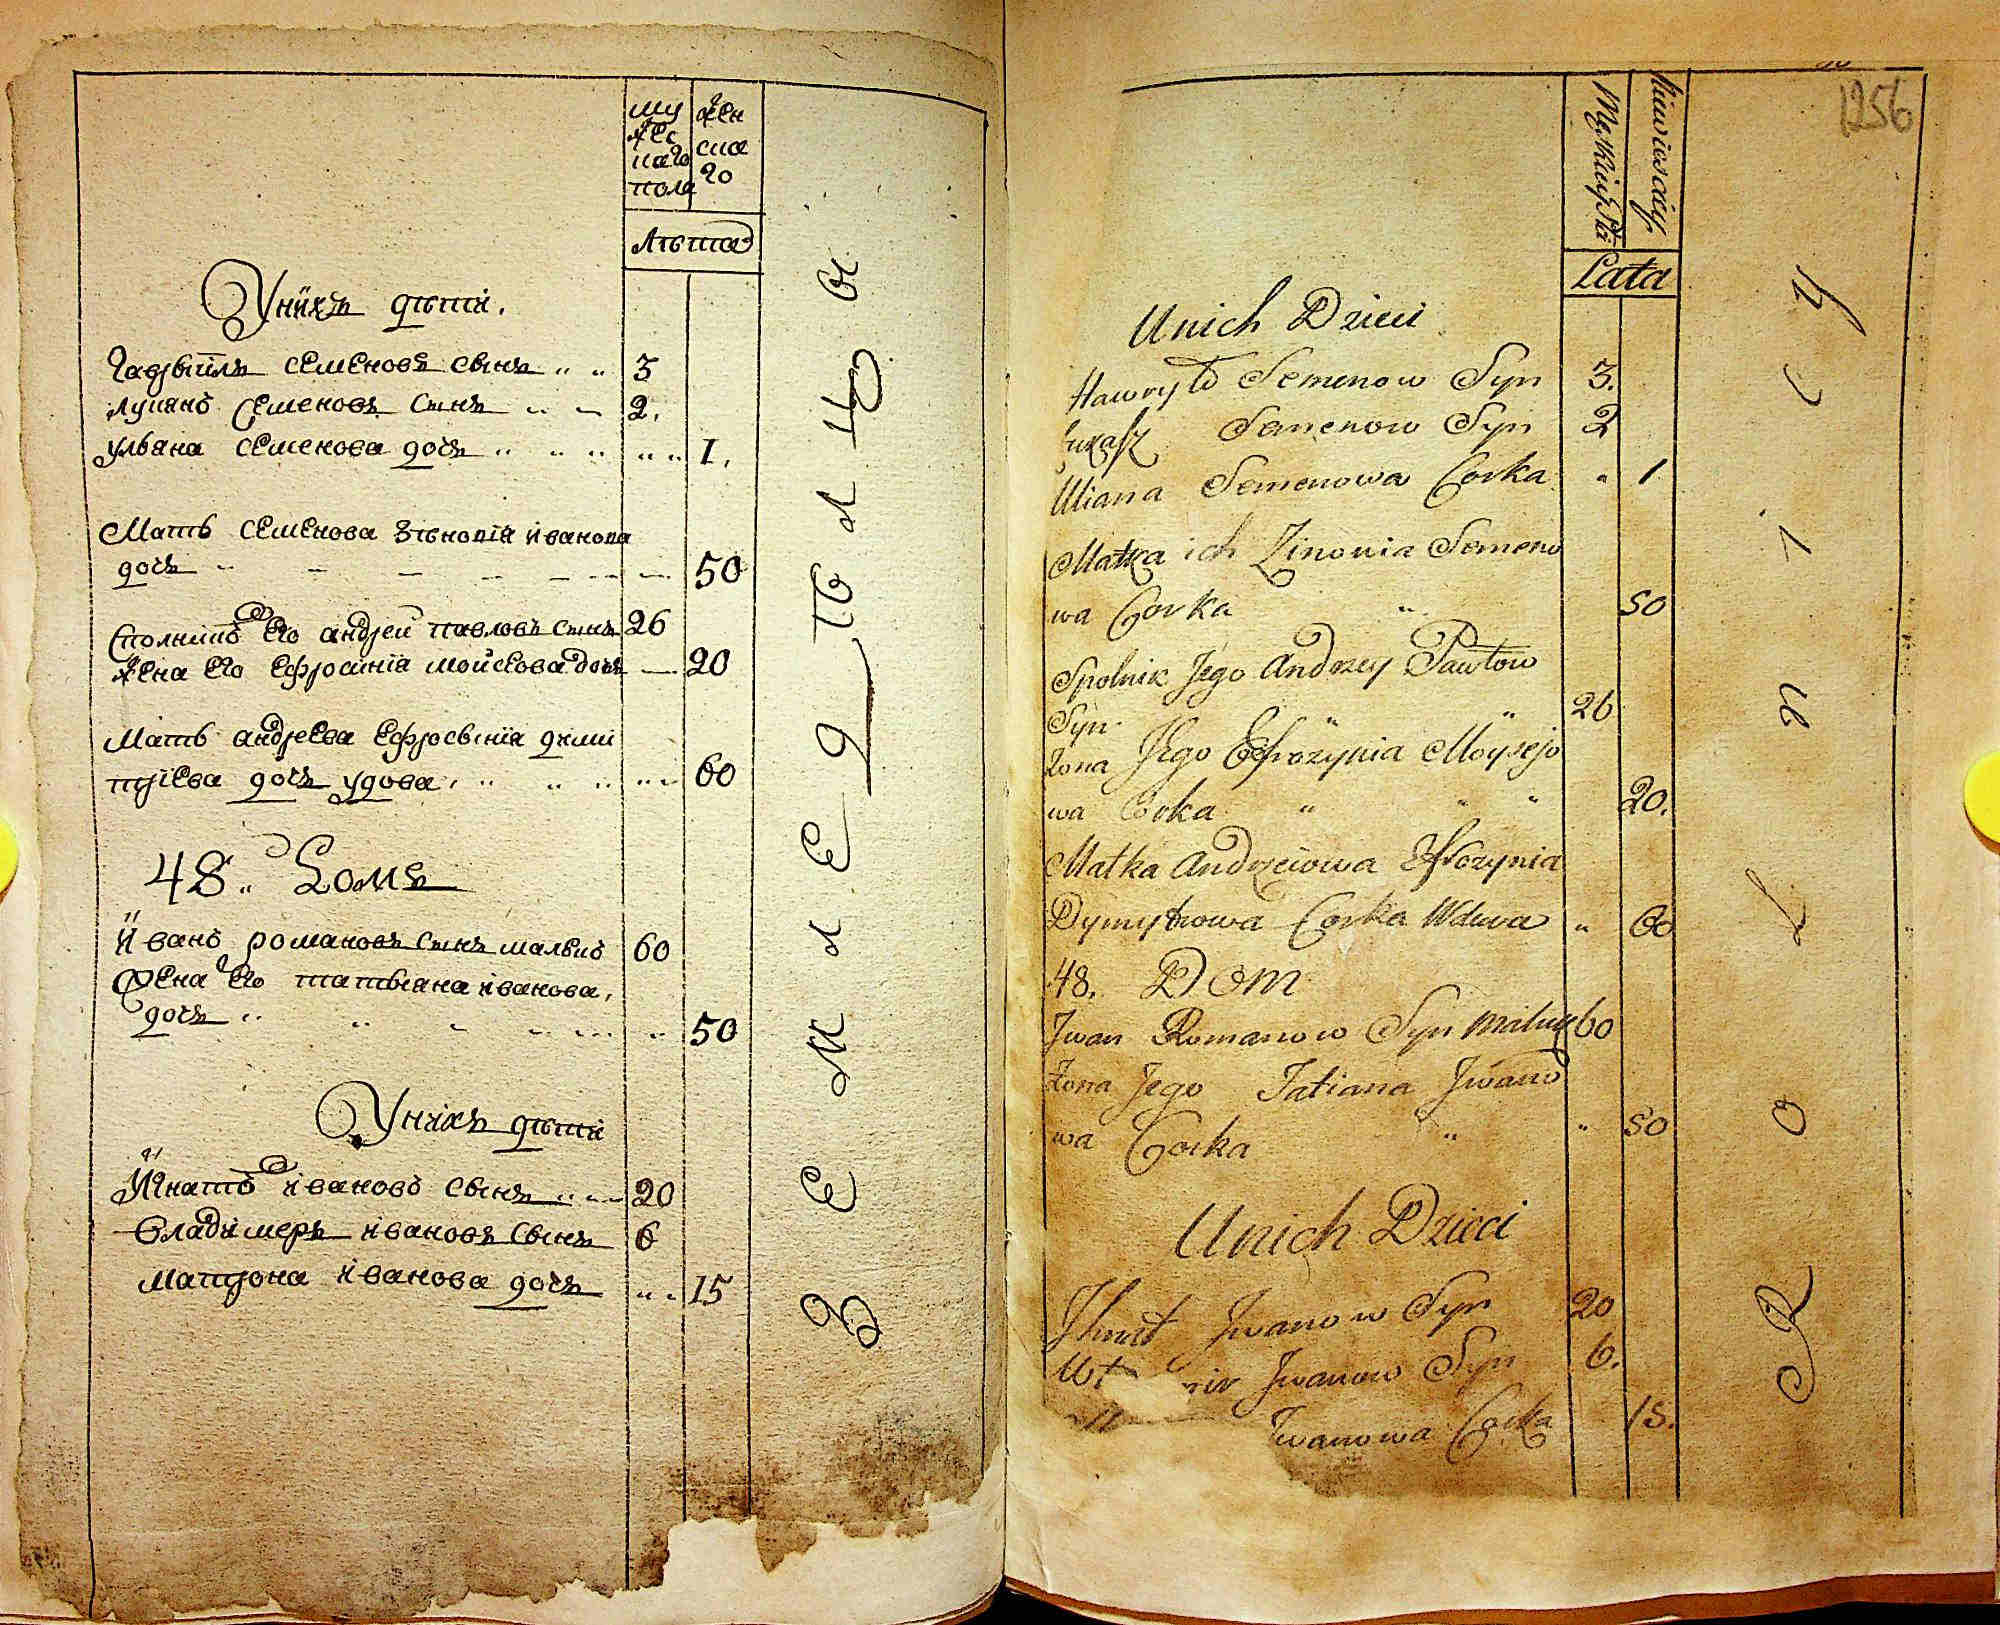 му
жес
каго
пола
жен
ска
го
Лѣта
Унихъ дѣти.
Гаврыилъ семеновъ сынъ „ „ 3
лукянъ семеновъ сынъ „ „ 2.
ульяна семенова дочь „ „ „ „ „ 1.
Мать семенова зѣновiя иванова
дочь „ 50
Сполникъ его андрей павловъ сынъ 26
жена его ефросинiя мойсеова дочь 20
Мать андреева ефросынiя дими
трiева дочь удова. „ „ „ „ „ 60
48. Домъ
Иванъ романовъ сынъ малыкъ 60
Жена его татьяна иванова.
дочь „ „ 50
Унихъ дѣти
Игнатъ ивановъ сынъ „ „ 20
Владимеръ ивановъ сынъ 6
матрона иванова дочь „ „ 15
З е м л е д ѣ л ц ы
1256
Męskiey Płci
Niewieściey
Lata
Unich Dzieci
Hawryło Semenow Syn 3.
Łukasz Semenow Syn 2
Uliana Semenowa Corka „ 1
Matka ich Zinowia Semeno
wa Corka „ 50
Spolnik Jego Andrzey Pawłow
Syn „ „ 26
Zona Jego Efrozynia Moysejo
wa Corka „ „ „ 20.
Matka Andrzeiowa Efrozynia
Dymytrowa Corka Wdowa „ 60
48. Dom
Jwan Romanow Syn Malyk 60
Zona Jego Tatiana Jwano
wa Corka „ „ 50
Unich Dzieci
Jhnat Jwanow Syn 20
Jwanow Syn 6.
Jwanowa Corka 15.
R o l n i c y